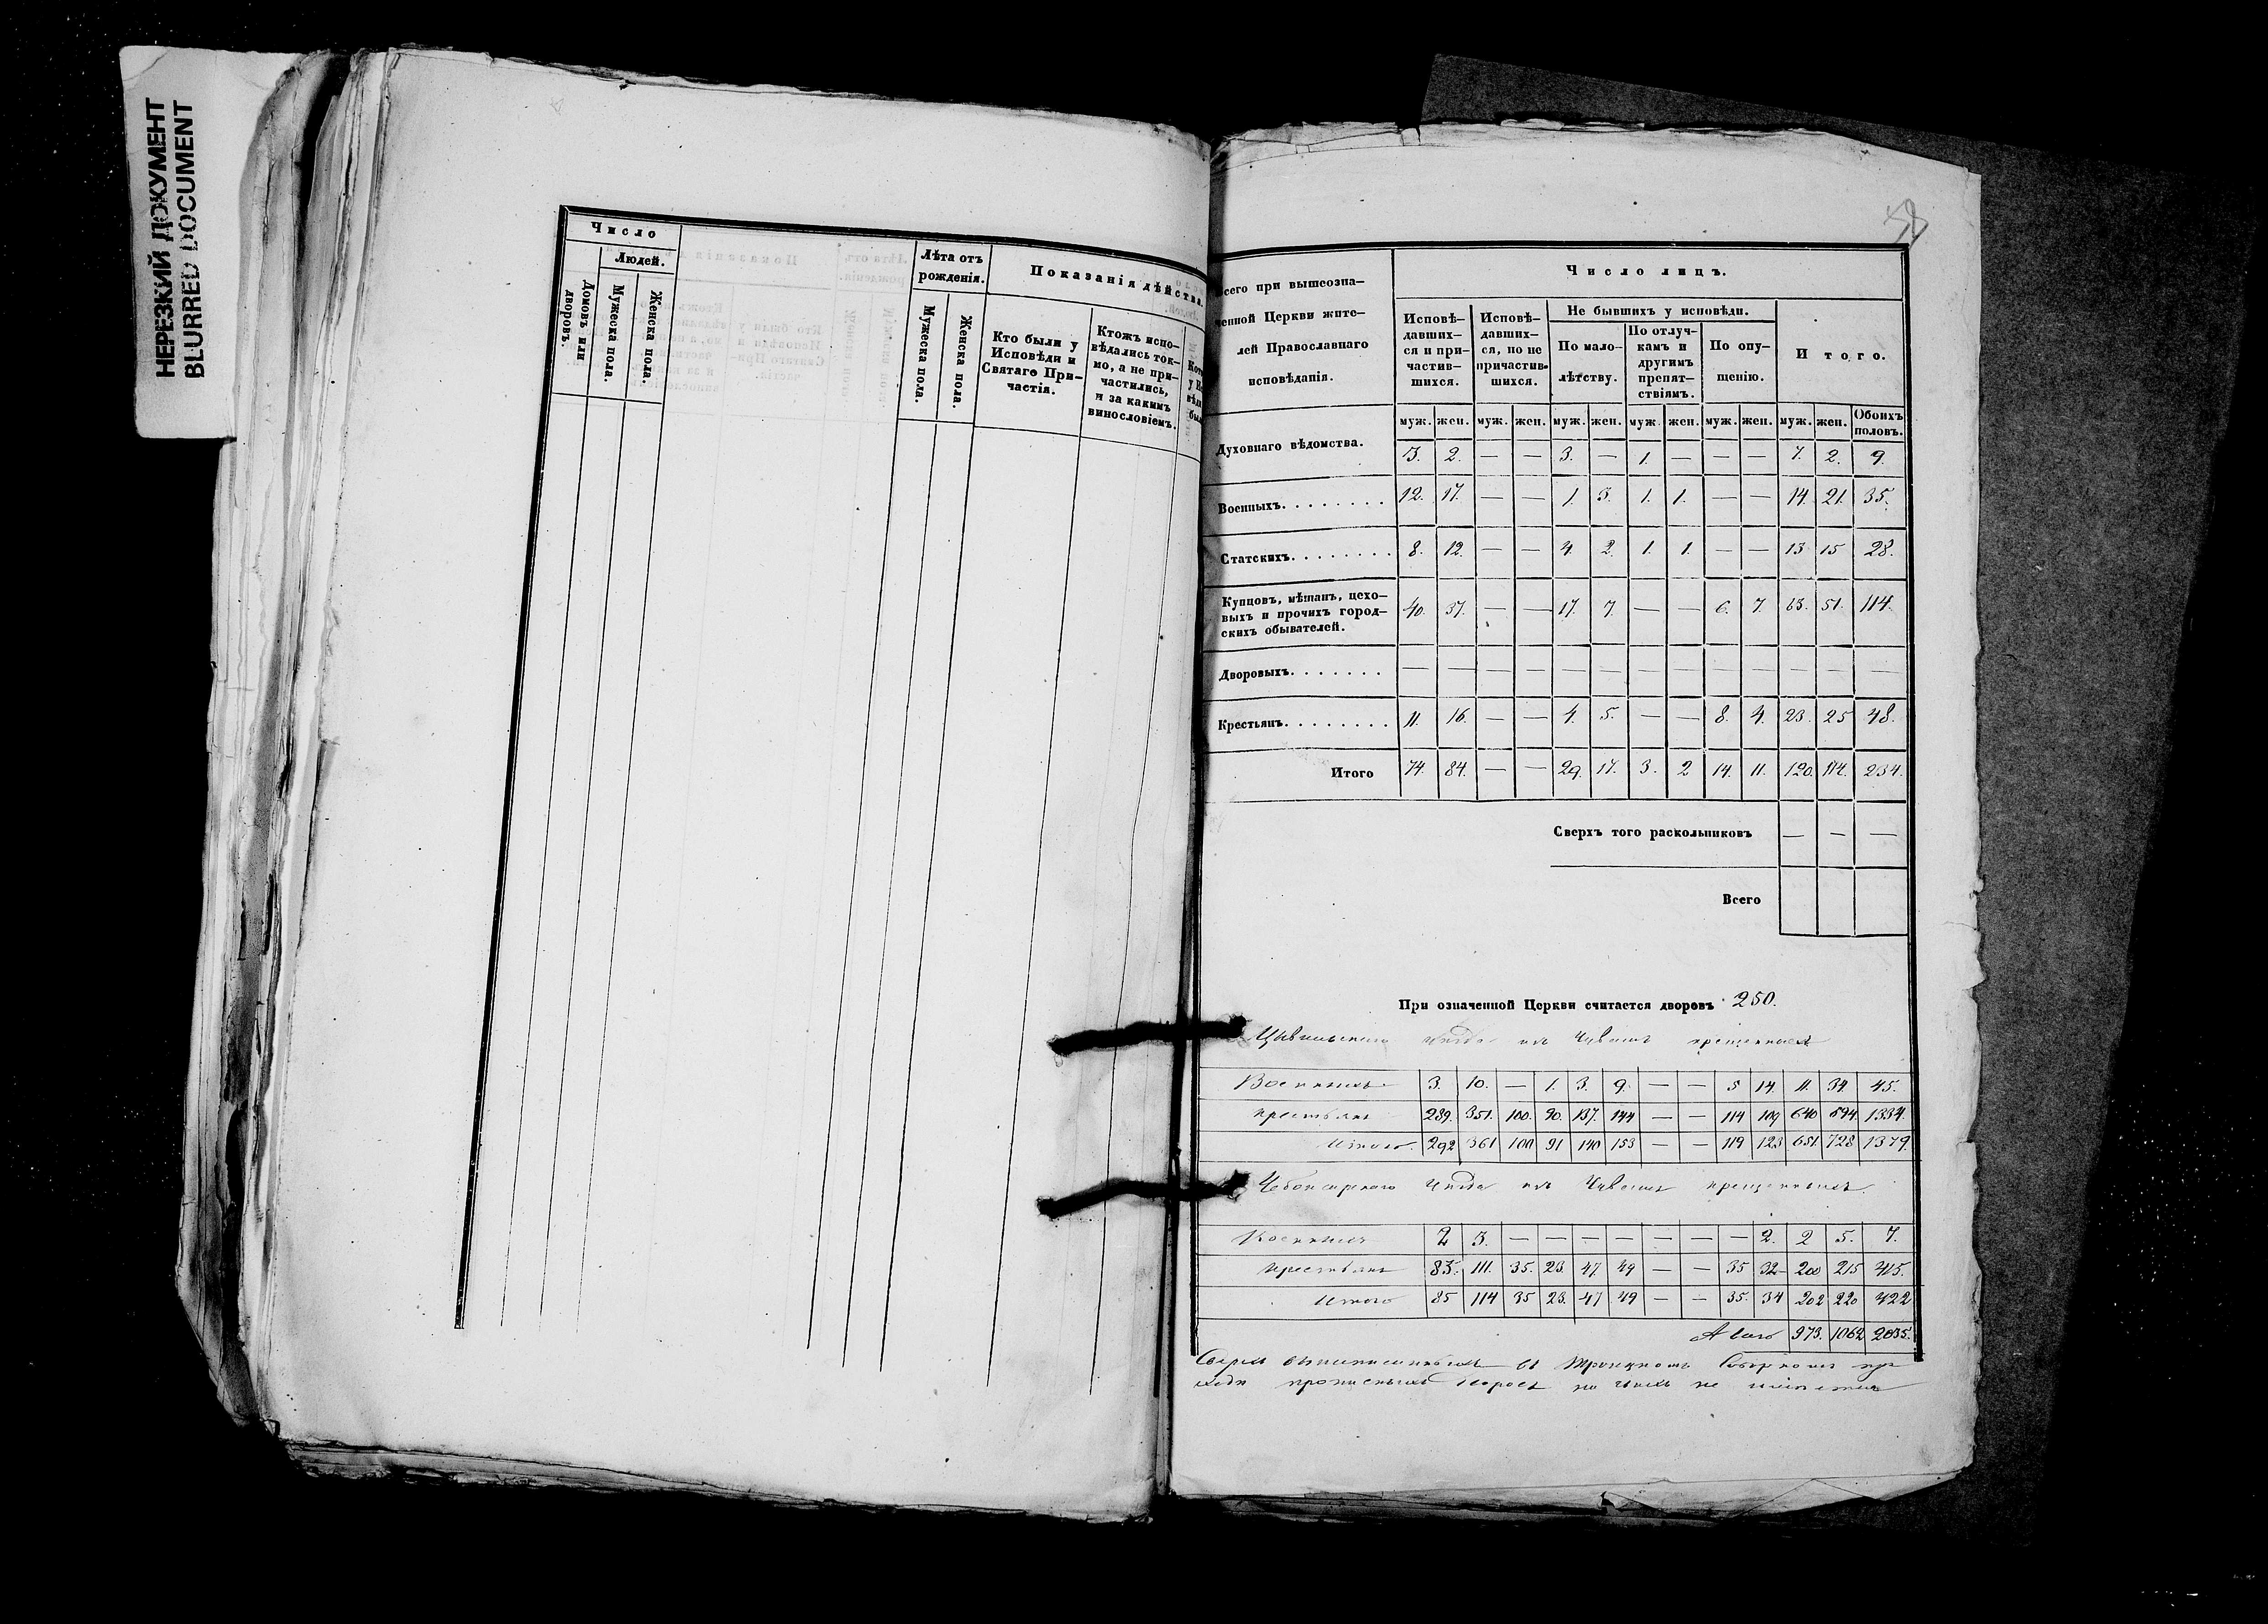 НЕРЕЗКИЙ ДОКУМЕНТ
BLURRED DOCUMENT
Число
Домовъ или дворовъ.
Людей.
Мужеска пола.
Женска пола.
Лѣта отъ рожденія.
Мужеска пола.
Женска пола.
Показанія дѣйства.
Кто были у
Исповѣди и
Святаго При-
частія.
Ктожъ испо-
вѣдались ток-
мо, а не при-
частились,
и за какимъ
винословіемъ.
58
Всего при вышеозна-
ченной Церкви жите-
лей Православнаго
исповѣданія.
Число лицъ.
Исповѣ-
давших-
ся и при-
частив-
шихся.
Исповѣ-
давших-
ся, но не
причастив-
шихся.
Не бывшихъ у исповѣди.
По мало-
лѣтству.
По отлуч-
камъ и
другимъ
препят-
ствіямъ.
По опу-
щенію.
Итого.
муж. жен. муж. жен. муж. жен. муж. жен. муж. жен. муж. жен. Обоихъ половъ.
Духовнаго вѣдомства. 3. 2. — — 3. — 1. — — — 7. 2. 9.
Военныхъ. . . . . . . . 12. 17. — — 1. 3. 1. 1. — — 14. 21. 35.
Статскихъ. . . . . . . . 8. 12. — — 4. 2. 1. 1. — — 13 15 28.
Купцовъ, мѣщанъ, цехо-
выхъ и прочихъ город-
скихъ обывателей. 40. 37. — — 17. 7. — — 6. 7. 63. 51. 114.
Дворовыхъ. . . . . . . — — — — — — — — — — — — —
Крестьянъ. . . . . . . . 11. 16. — — 4. 5. — — 8. 4. 23. 25 48.
Итого 74. 84. — — 29. 17. 3. 2 14. 11. 120. 114. 234.
Сверхъ того раскольниковъ — — —
Всего
При означенной Церкви считается дворовъ 250.
Цивильскаго уѣзда изъ Чувашъ крещенныхъ
Военныхъ 3. 10. — 1. 3. 9. — — 5 14. 11. 34. 45.
крестьянъ 289. 351. 100. 90. 137. 144 — — 114 109 640 694. 1334.
Итого. 292 361 100 91 140 153 — — 119 123 651 728 1379.
Чебоксарскаго уѣзда изъ Чувашъ крещенныхъ.
Военныхъ 2 3. — — — — — — — 2. 2 5. 7.
крестьянъ 83. 111. 35. 23. 47. 49 — — 35 32 200 215 415.
Итого 85 114 35 23. 47 49 — — 35. 34 202 220 422
А всего 973. 1062 2035.
Сверхъ въ Троицкомъ Соборномъ при-
ходѣ не имѣется